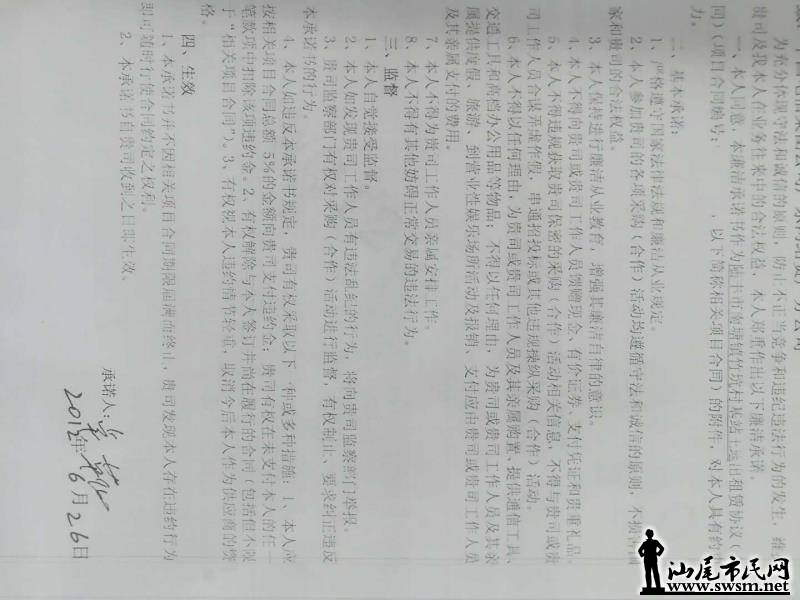 为充分体现守法和诚信的原则，防止不正当竞争和违纪违法行为的发生，维
贵司及我本人在业务往来中的合法权益，本人郑重作出以下廉洁承诺。
一、本人同意，本廉洁承诺书作为陆丰市
租赁协议（
同）（项目合同编号：　　，以下简称相关项目合同）的附件，对本人具有约
力。
二、基本承诺：
1、严格遵守国家法律法规和廉洁从业规定。
2、本人参加贵司的各项采购（合作）活动均遵循守法和诚信的原则，不损害国
家和贵司的合法权益。
3、本人保持进行廉洁从业教育，增强其廉洁自律的意识。
4、本人不得向贵司或贵司工作人员馈赠现金、有价证券、支付凭证和贵重礼品。
5、本人不得违规获取贵司保密的采购（合作）活动相关信息，不得与贵司或贵
司工作人员合谋弄虚作假、串通招投标或其他违规操纵采购（合作）活动。
6、本人不得以任何理由，为贵司或贵司工作人员及其亲属购置、提供通信工具、
交通工具和高档办公用品等物品；不得以任何理由，为贵司或贵司工作人员及其亲
属提供度假、旅游、到营业性娱乐场所活动及报销、支付应由贵司或贵司工作人员
及其亲属支付的费用。
7、本人不得为贵司工作人员亲属安排工作。
8、本人不得有其他妨碍正常交易的违法行为。
三、监督
1、本人自觉接受监督。
2、本人如发现贵司工作人员有违法乱纪的行为，将向贵司监察部门举报。
3、贵司监察部门有权对采购（合作）活动进行监督，有权制止、要求纠正违反
本承诺书的行为。
4、本人如违反本承诺书规定，贵司有权采取以下一种或多种措施：1、本人应
按相关项目合同总额 5%的金额向贵司支付违约金；贵司有权在未支付本人的任一
笔款项中扣除该项违约金。2、有权解除与本人签订并尚在履行的合同（包括但不限
于“相关项目合同”）。3、有权视本人违约情节轻重，取消今后本人作为供应商的资
格。
四、生效
1、本承诺书并不因相关项目合同期限届满而终止，贵司发现本人存在违约行为
即可随时行使合同约定之权利。
2、本承诺书自贵司收到之日即生效。
承诺人：
年6月26日
汕尾市民网
www.swsm.net